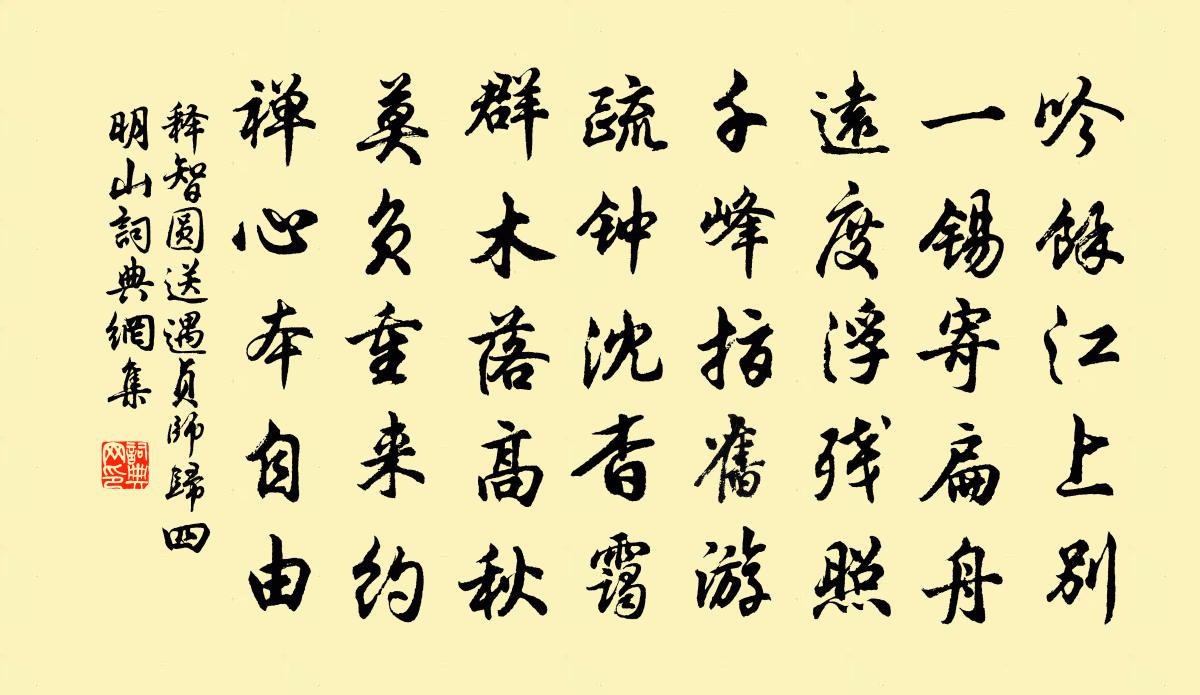 吟餘江上别
一锡寄扁舟
遠度浮残照
千峰指舊游
疏钟沈杳靄
群木落高秋
莫负重来约
禅心本自由
释智圆送遇貞师歸四
明山詞典網集
詞典
网印